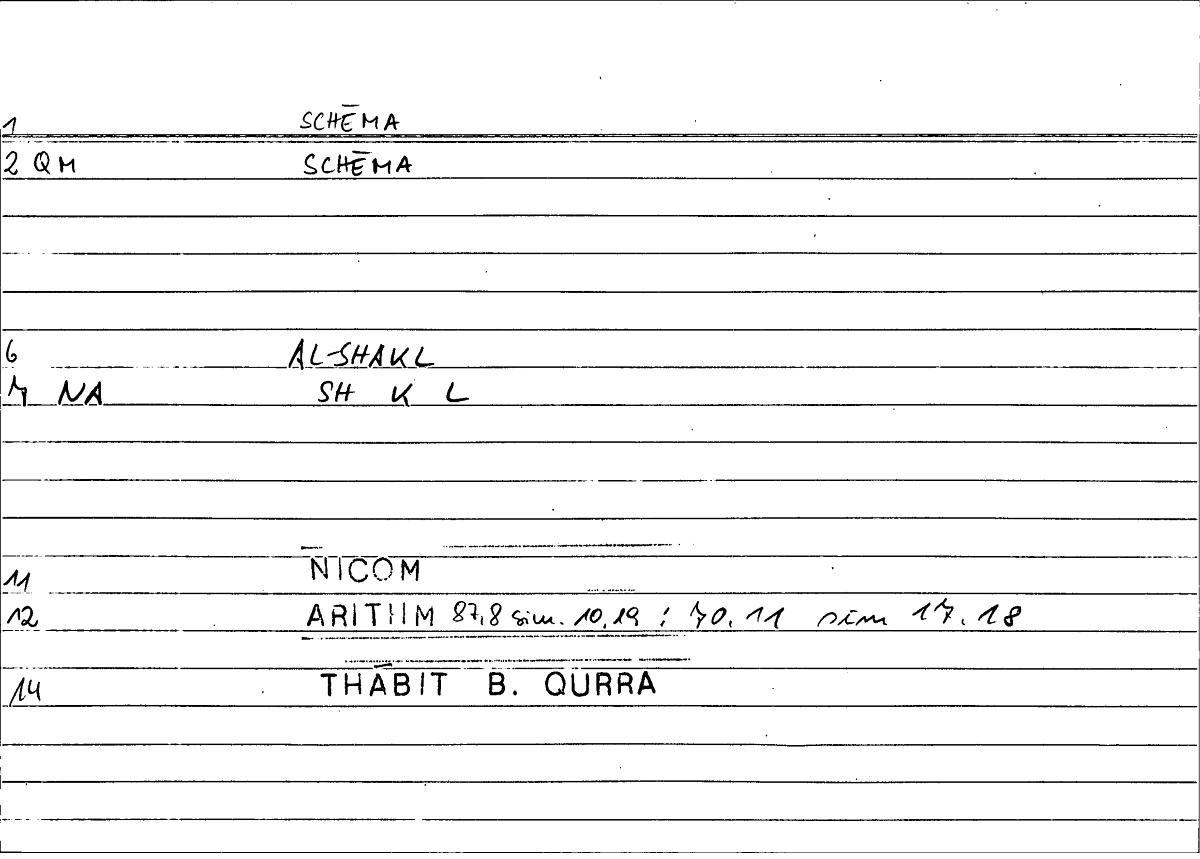 1 SCHĒMA
2 QM SCHĒMA
6 AL-SHAKL
7 NA SH K L
11 NICOM
12 ARITHM 87,8 sim. 10,19 ; 70.11 sim 17.18
14 THĀBIT B. QURRA